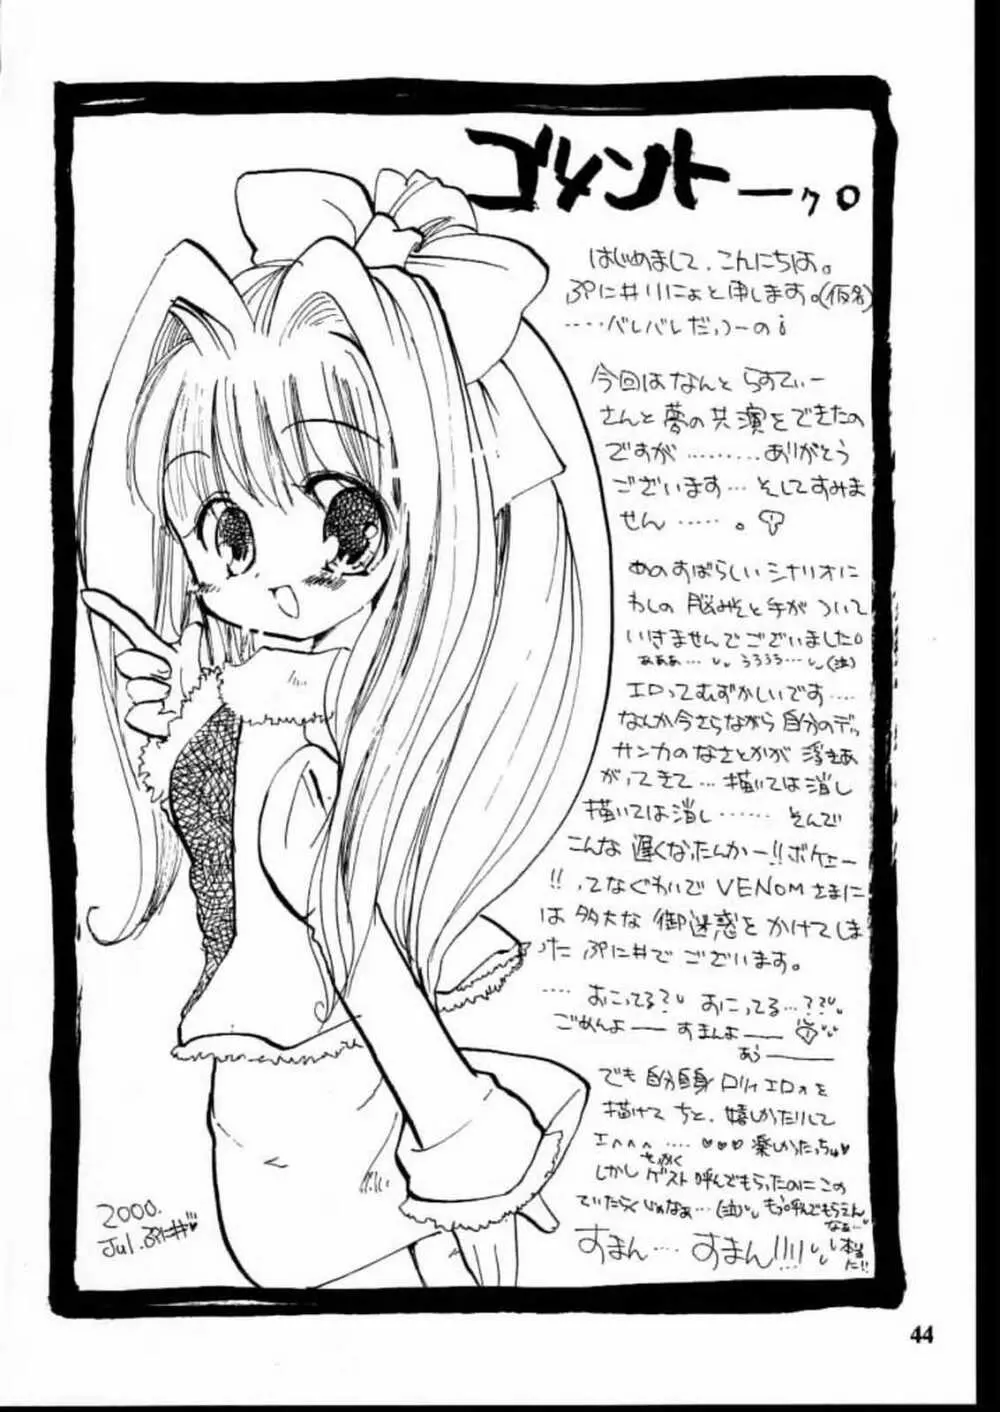 コメントーッ。
はじめまして、こんにちは。
ぷに井りにょと申します。(仮名)
....バレバレだっつーの!
今回はなんと らすてぃー
さんと 夢の共演をできたの
ですが .........ありがとう
ございます... そしてすみま
せん ...... 。
あのすばらしいシナリオに
わしの脳みそと手が ついて
いきませんでございました。
ああぁ... うろうろ...(泣)
エロってむずかしいです....
なんか今さらながら 自分のデッ
サン力のなさとかが 浮きあ
がってきて... 描いては消し
描いては消し...... そんで
こんな 遅くなったんかー!!ボケェー
!! ってなぐわいで VENOMさまに
は 多大な 御迷惑を かけてしま
った ぷに井でございます。
.... おこってる? おこってる...??
ごめんよ―― すまんよ――
あう――
でも 自分自身 ロリィエロを
描けて ちと、嬉しかたりして
エヘヘヘ .... ♥♥♥ 楽しかったっちゅ♥
しかし せっかく ゲスト 呼んでもらったのに この
ていたらくじゃなぁ...(泣) もう呼んでもらえん
なぁ...
すまん... すまん!!!! 本当
に!!
2000.
Jul. ぷに井♥
44